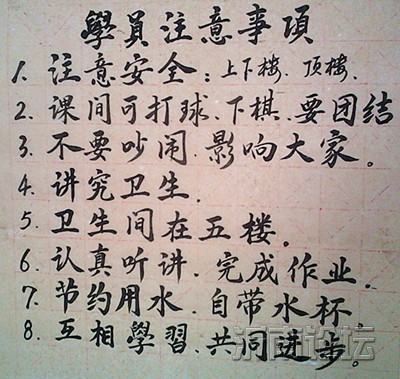 學員注意事項
1. 注意安全：上下楼、顶楼.
2. 课间可打球.下棋.要团结
3. 不要吵闹 影响大家。
4. 讲究卫生.
5. 卫生间在五楼。
6. 认真听讲.完成作业.
7. 节约用水.自带水杯.
8. 互相學習.共同进步。